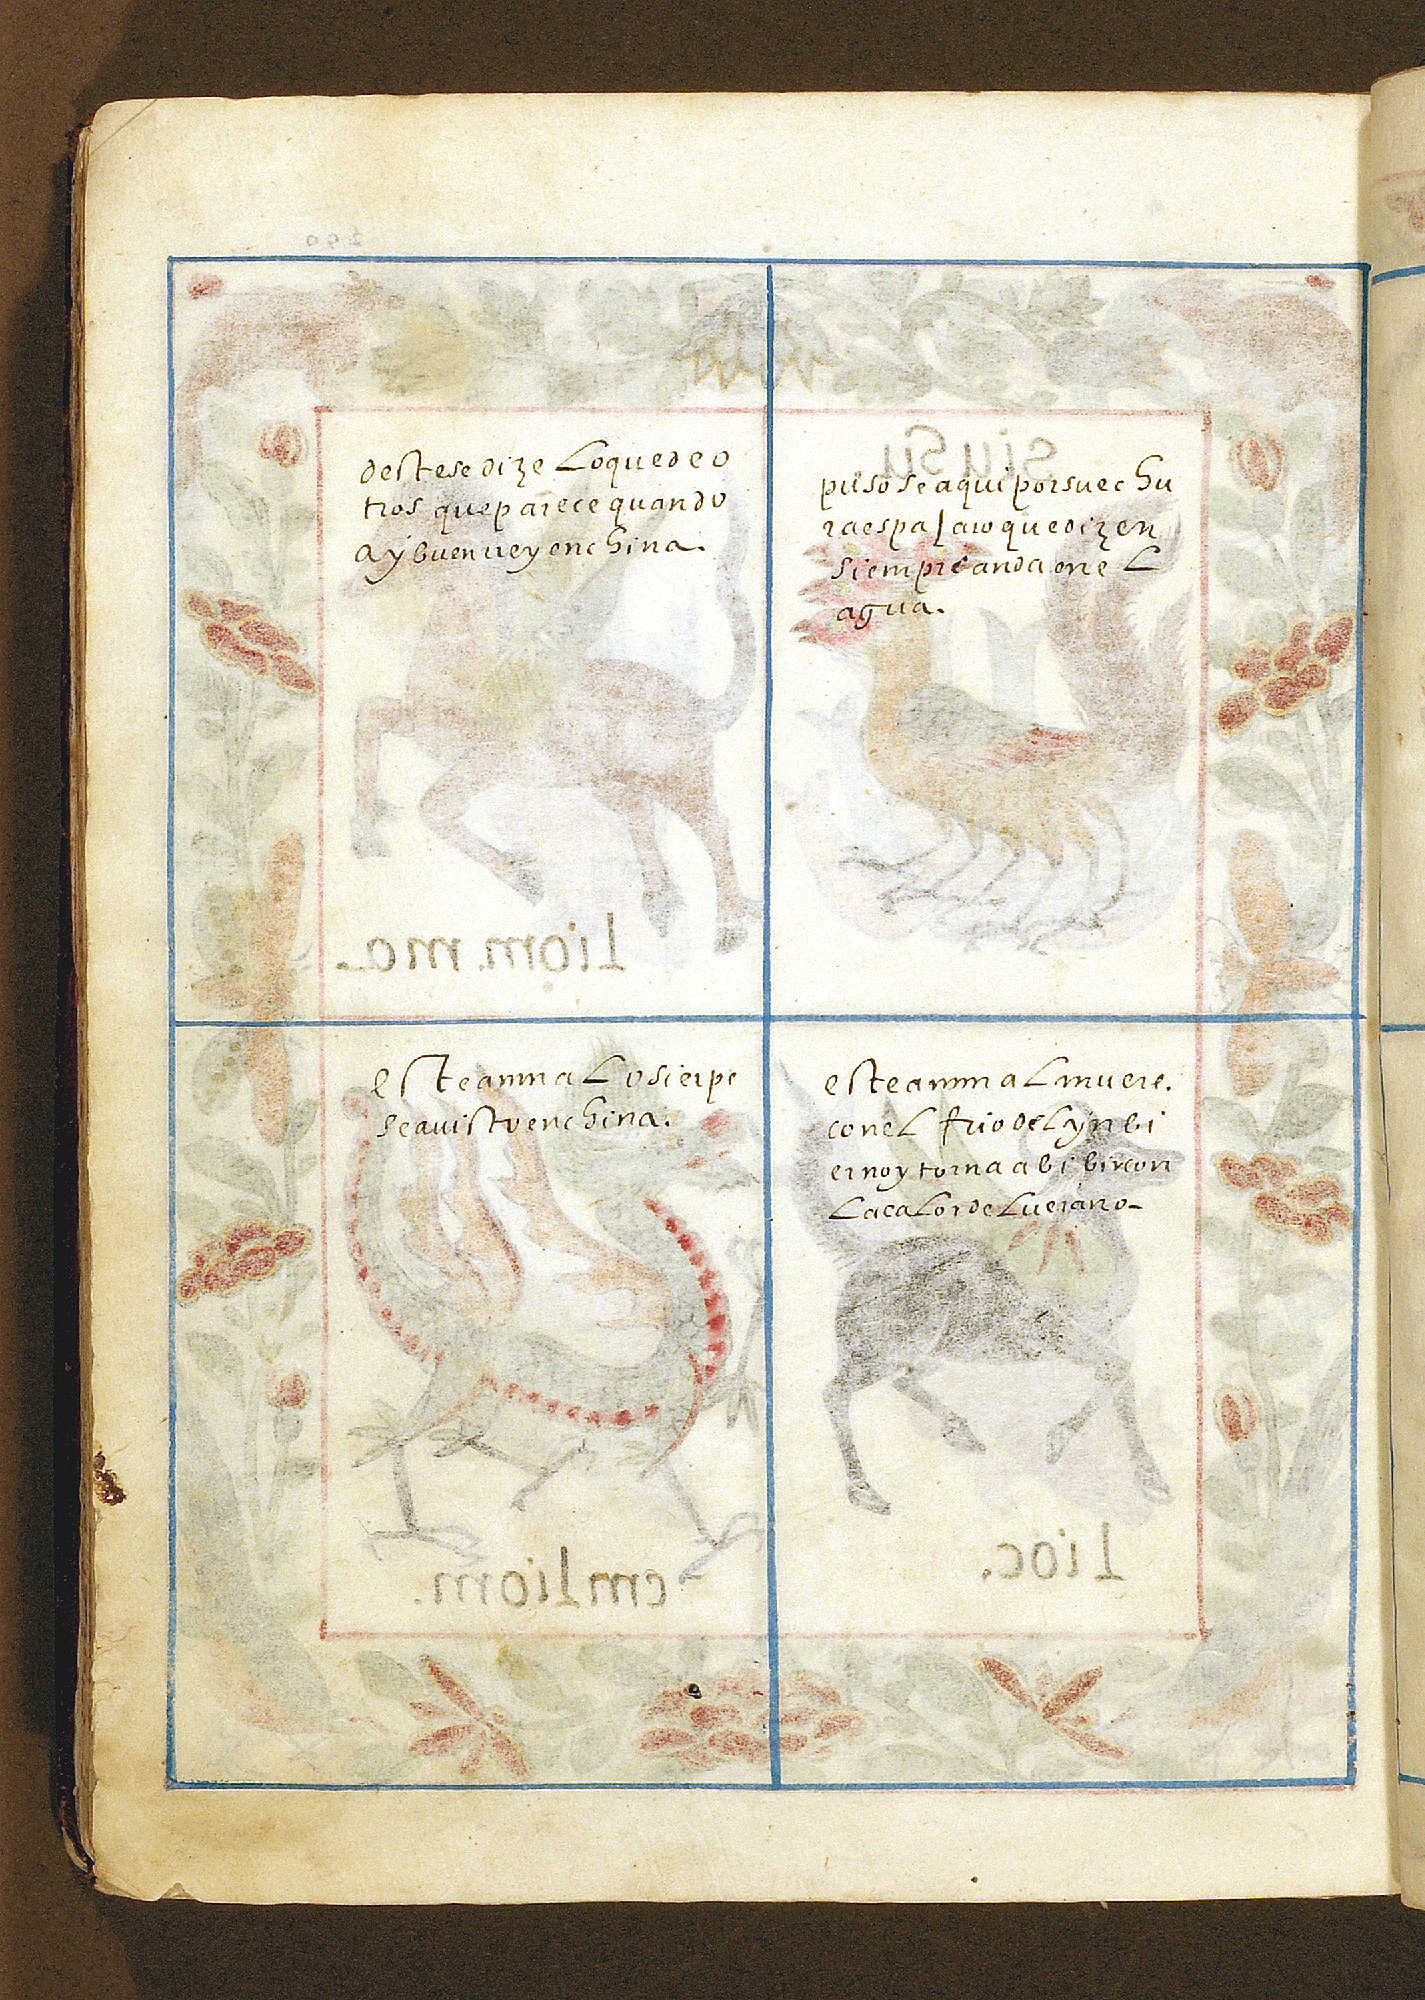 destese dize Loquedeo
tros queparece quando
ay buen rey enchina.
puso se aqui porsuechu
raespajaro quedizen
siempre anda en e L
agua.
este anima L o sierpe
seavisto enchina.
este anima L muere.
con eL frio deLynbi
erno y torna a bibir con
La caLor deLverano